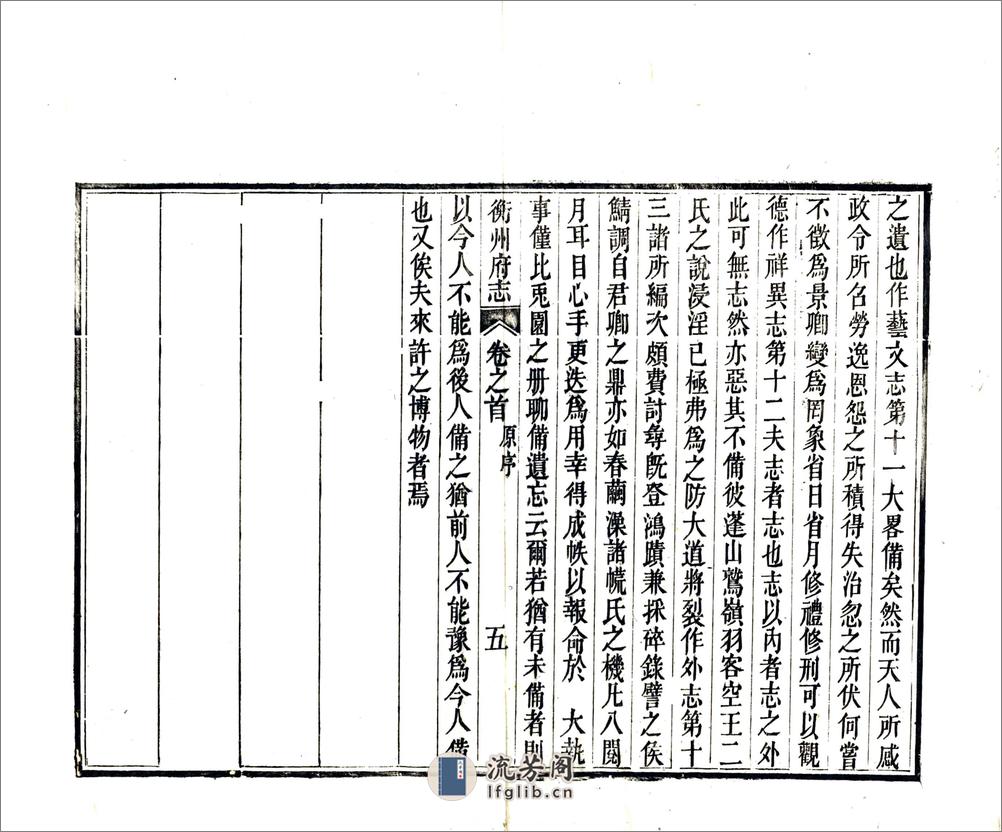 之遺也作藝文志第十一大畧備矣然而天人所感
政令所名勞逸恩怨之所積得失治忽之所伏何嘗
不徵爲景卿變爲罔象省日省月修禮修刑可以觀
德作祥異志第十二夫志者志也志以內者志之外
此可無志然亦惡其不備彼蓬山鷲嶺羽客空王二
氏之說浸淫已極弗爲之防大道將裂作外志第十
三諸所編次頗費討尋旣登鴻蹟兼採碎錄譬之侯
鯖調自君卿之鼎亦如春繭澡諸㡛氏之機凡八閱
月耳目心手更迭爲用幸得成帙以報命於 大執
事僅比兎園之册聊備遺忘云爾若猶有未備者則
衡州府志 卷之首 原序 五
以今人不能爲後人備之猶前人不能豫爲今人備
也又俟夫來許之博物者焉
流芳阁
lfglib.cn